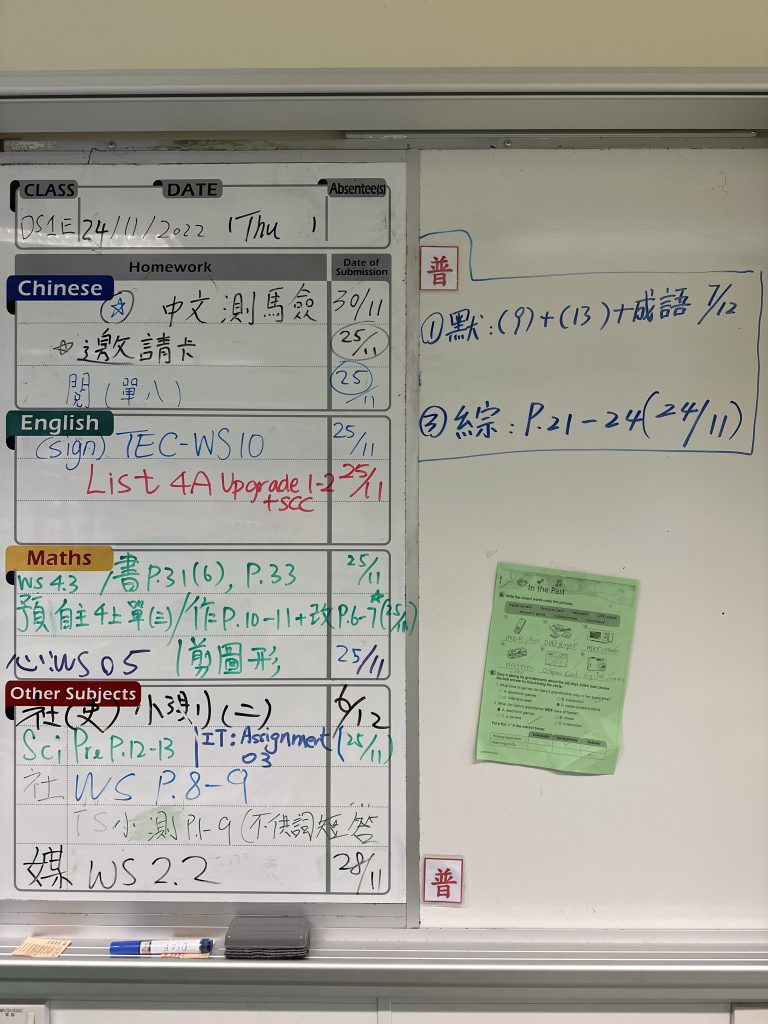 CLASS DATE Absentee(s)
DS1E 24/11/2022 (Thu)
Homework Date of Submission
Chinese
☆ 中文測馬僉 30/11
☆邀請卡 25/11
閱(單八) 25/11
English
(sign) TEC-WS10 25/11
List 4A Upgrade 1-2 25/11
+SCC
Maths
WS 4.3 /書P.31(6), P.33 25/11
預自主4上單(三)/作P.10-11+改P.6-7(25/11)
心:WS 05 /剪圖形 25/11
Other Subjects
社(史) 小測(二) 6/12
Sci Pre P.12-13 IT: Assignment 03 (25/11)
社 WS P.8-9
TS小測P.1-9(不供詞短答
媒 WS 2.2 28/11
普
①默:(9)+(13)+成語 7/12
③綜:P.21-24(24/11)
In the Past
Write the correct words under the pictures.
普